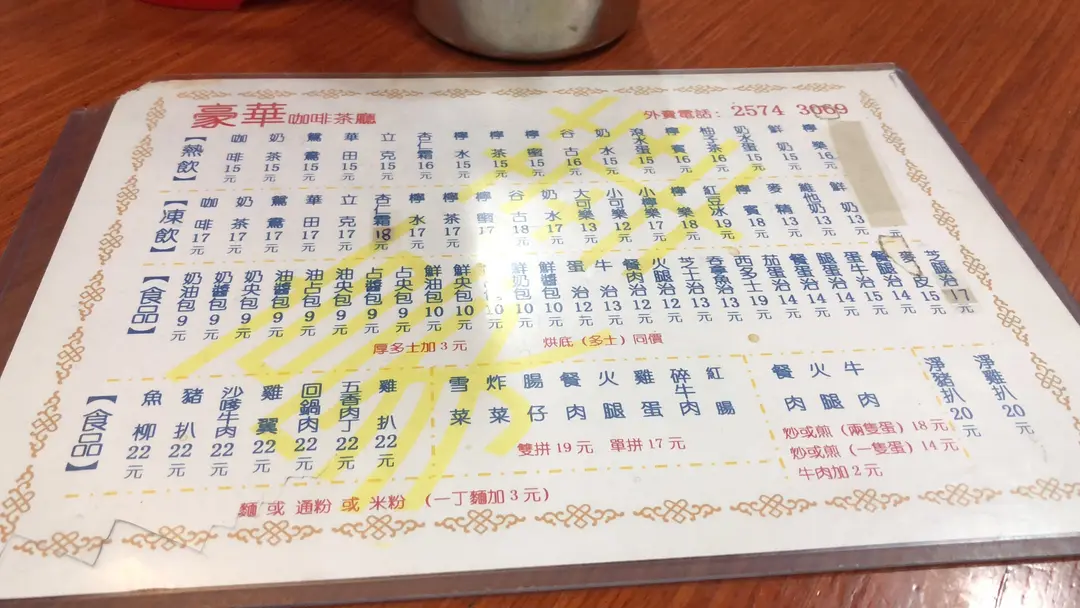 豪華咖啡茶廳
外賣電話：2574 3069
【熱飲】
咖啡15元
奶茶15元
鴛鴦15元
華田15元
立克15元
杏仁霜16元
檸水15元
檸茶15元
檸蜜15元
谷古16元
奶水15元
滾水蛋15元
檸賓16元
柚子茶16元
奶水蛋15元
鮮奶15元
檸樂16元
【凍飲】
咖啡17元
奶茶17元
鴛鴦17元
華田17元
立克17元
杏仁霜18元
檸水17元
檸茶17元
檸蜜17
谷古18元
奶水17元
大可樂13元
小可樂12元
小檸樂17元
檸樂18元
紅豆冰19元
檸賓18元
麥精13元
維他奶13元
鮮奶13元
元
【食品】
奶油包9元
奶醬包9元
奶央包9元
油醬包9元
油占包9元
油央包9元
占醬包9元
占央包9元
鮮油包10元
鮮央包10元
10元
鮮奶包10元
鮮醬包10元
蛋治12元
牛治13元
餐肉治12元
火腿治12元
芝士治13元
吞拿魚治13元
西多士19元
茄蛋治14元
餐蛋治14元
腿蛋治14元
蛋牛治15元
餐腿治14元
麥皮15元
芝腿治17元
厚多士加3元
烘底（多士）同價
【食品】
魚柳22元
豬扒22元
沙嗲牛肉22元
雞翼22元
回鍋肉22元
五香肉丁22元
雞扒22元
雪菜
炸菜
腸仔
餐肉
火腿
雞蛋
碎牛肉
紅腸
雙拼19元 單拼17元
餐肉
火腿
牛肉
炒或煎（兩隻蛋）18元
炒或煎（一隻蛋）14元
牛肉加2元
淨豬扒20元
淨雞扒20元
麵 或 通粉 或 米粉 （一丁麵加3元）